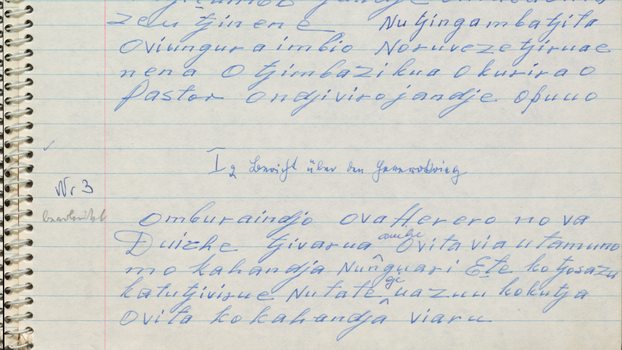 zeu tjinene Nutjingambatjita
Oviungura imbio Noruvezetjiruae
nena Otjimbazikua okurirao
Pastor ondjivirojandje opuuo
I 2 Bericht über den Hererokrieg
Nr 3
bearbeitet
Omburaindjo ovaHerero nova
Duitche tjivarua ombe Ovitaviautamuno
mo kahandja Nunguari Ete kotjosazu
katutjivirue Nutate ge uazuu kokutja
Ovita kokahandja viaru